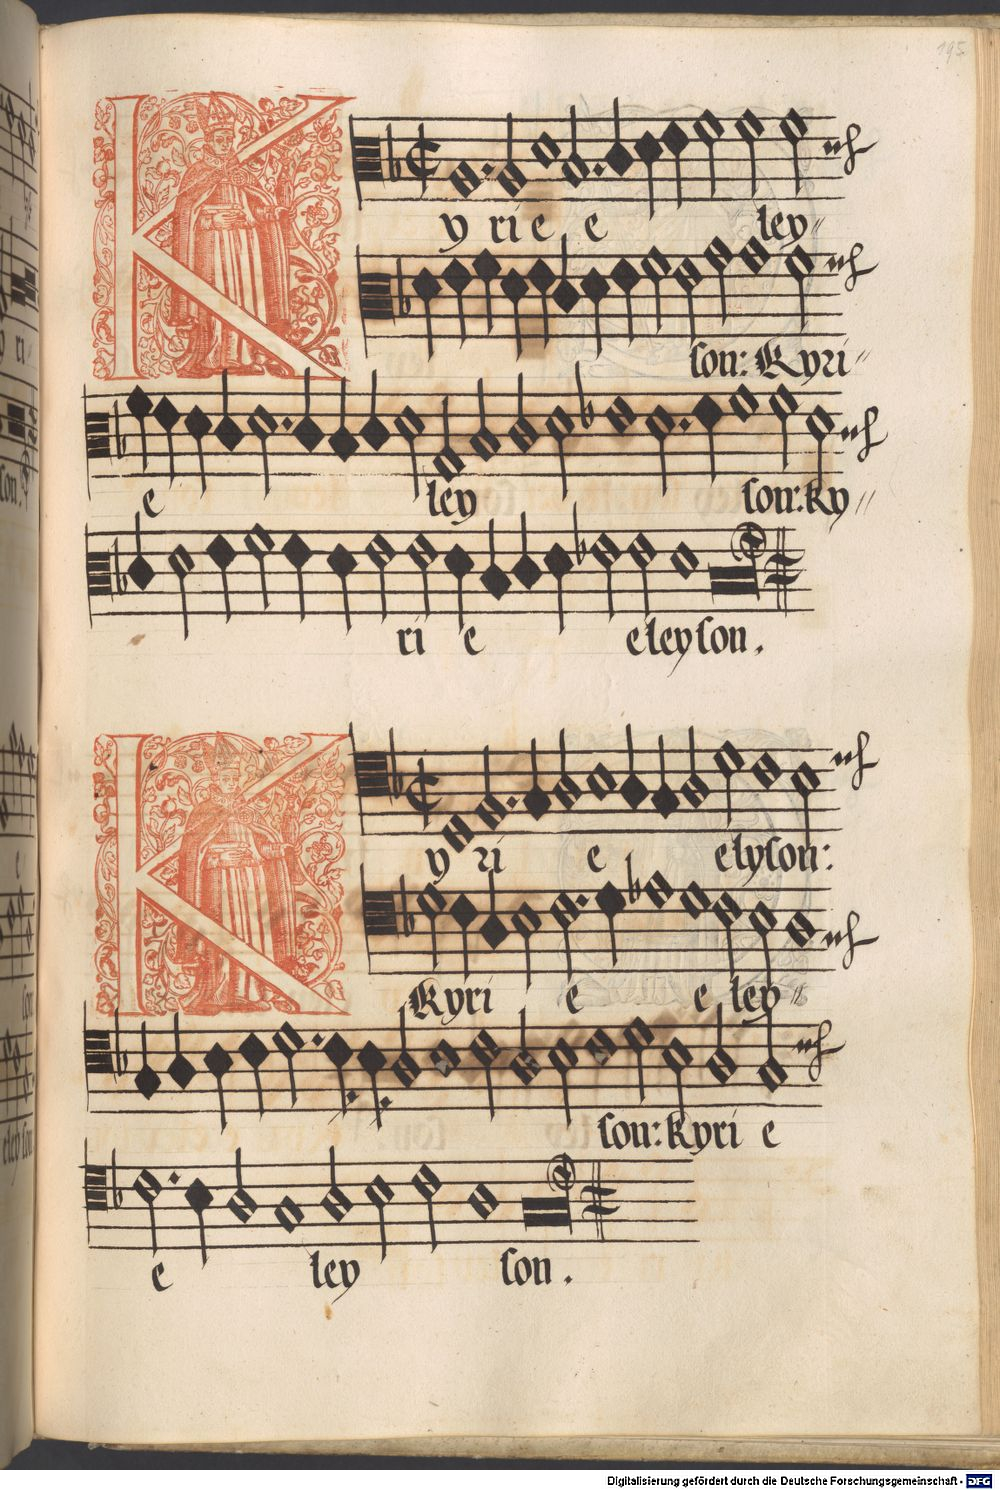 195
K
y ri e e ley
son: Kyri
e ley son: ky
ri e eleyson.
K
y ri e elyson:
Kyri e e ley
son: kyri e
e ley son.
ri
son
e
son:
eley son
Digitalisierung gefördert durch die Deutsche Forschungsgemeinschaft - DFG